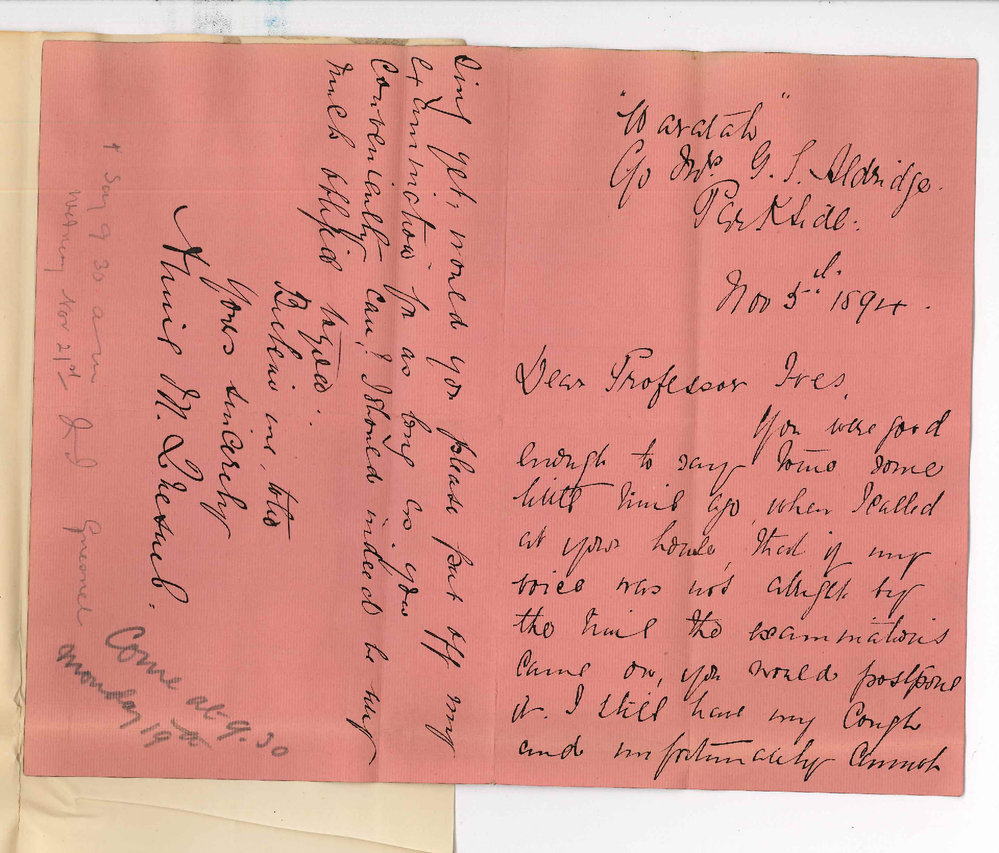 "Waratah"
C/o Mrs G. S. Aldridge.
Parkside.
Nov 5th 1894.
Dear Professor Ives,
You were good
enough to say to me some
little time ago, when I called
at your house, that if my
voice was not allright by
the time the examinations
came on, you would postpone
it. I still have my cough
and unfortunately cannot
sing yet, would you please put off my
examination for as long as you
conveniently can? I should indeed be very
much obliged to you.
Believe me, to be
Yours sincerely
Annie M.
Come at 9.30
Monday 19th
+ Say 9 30 am
Wednesday Nov 21st